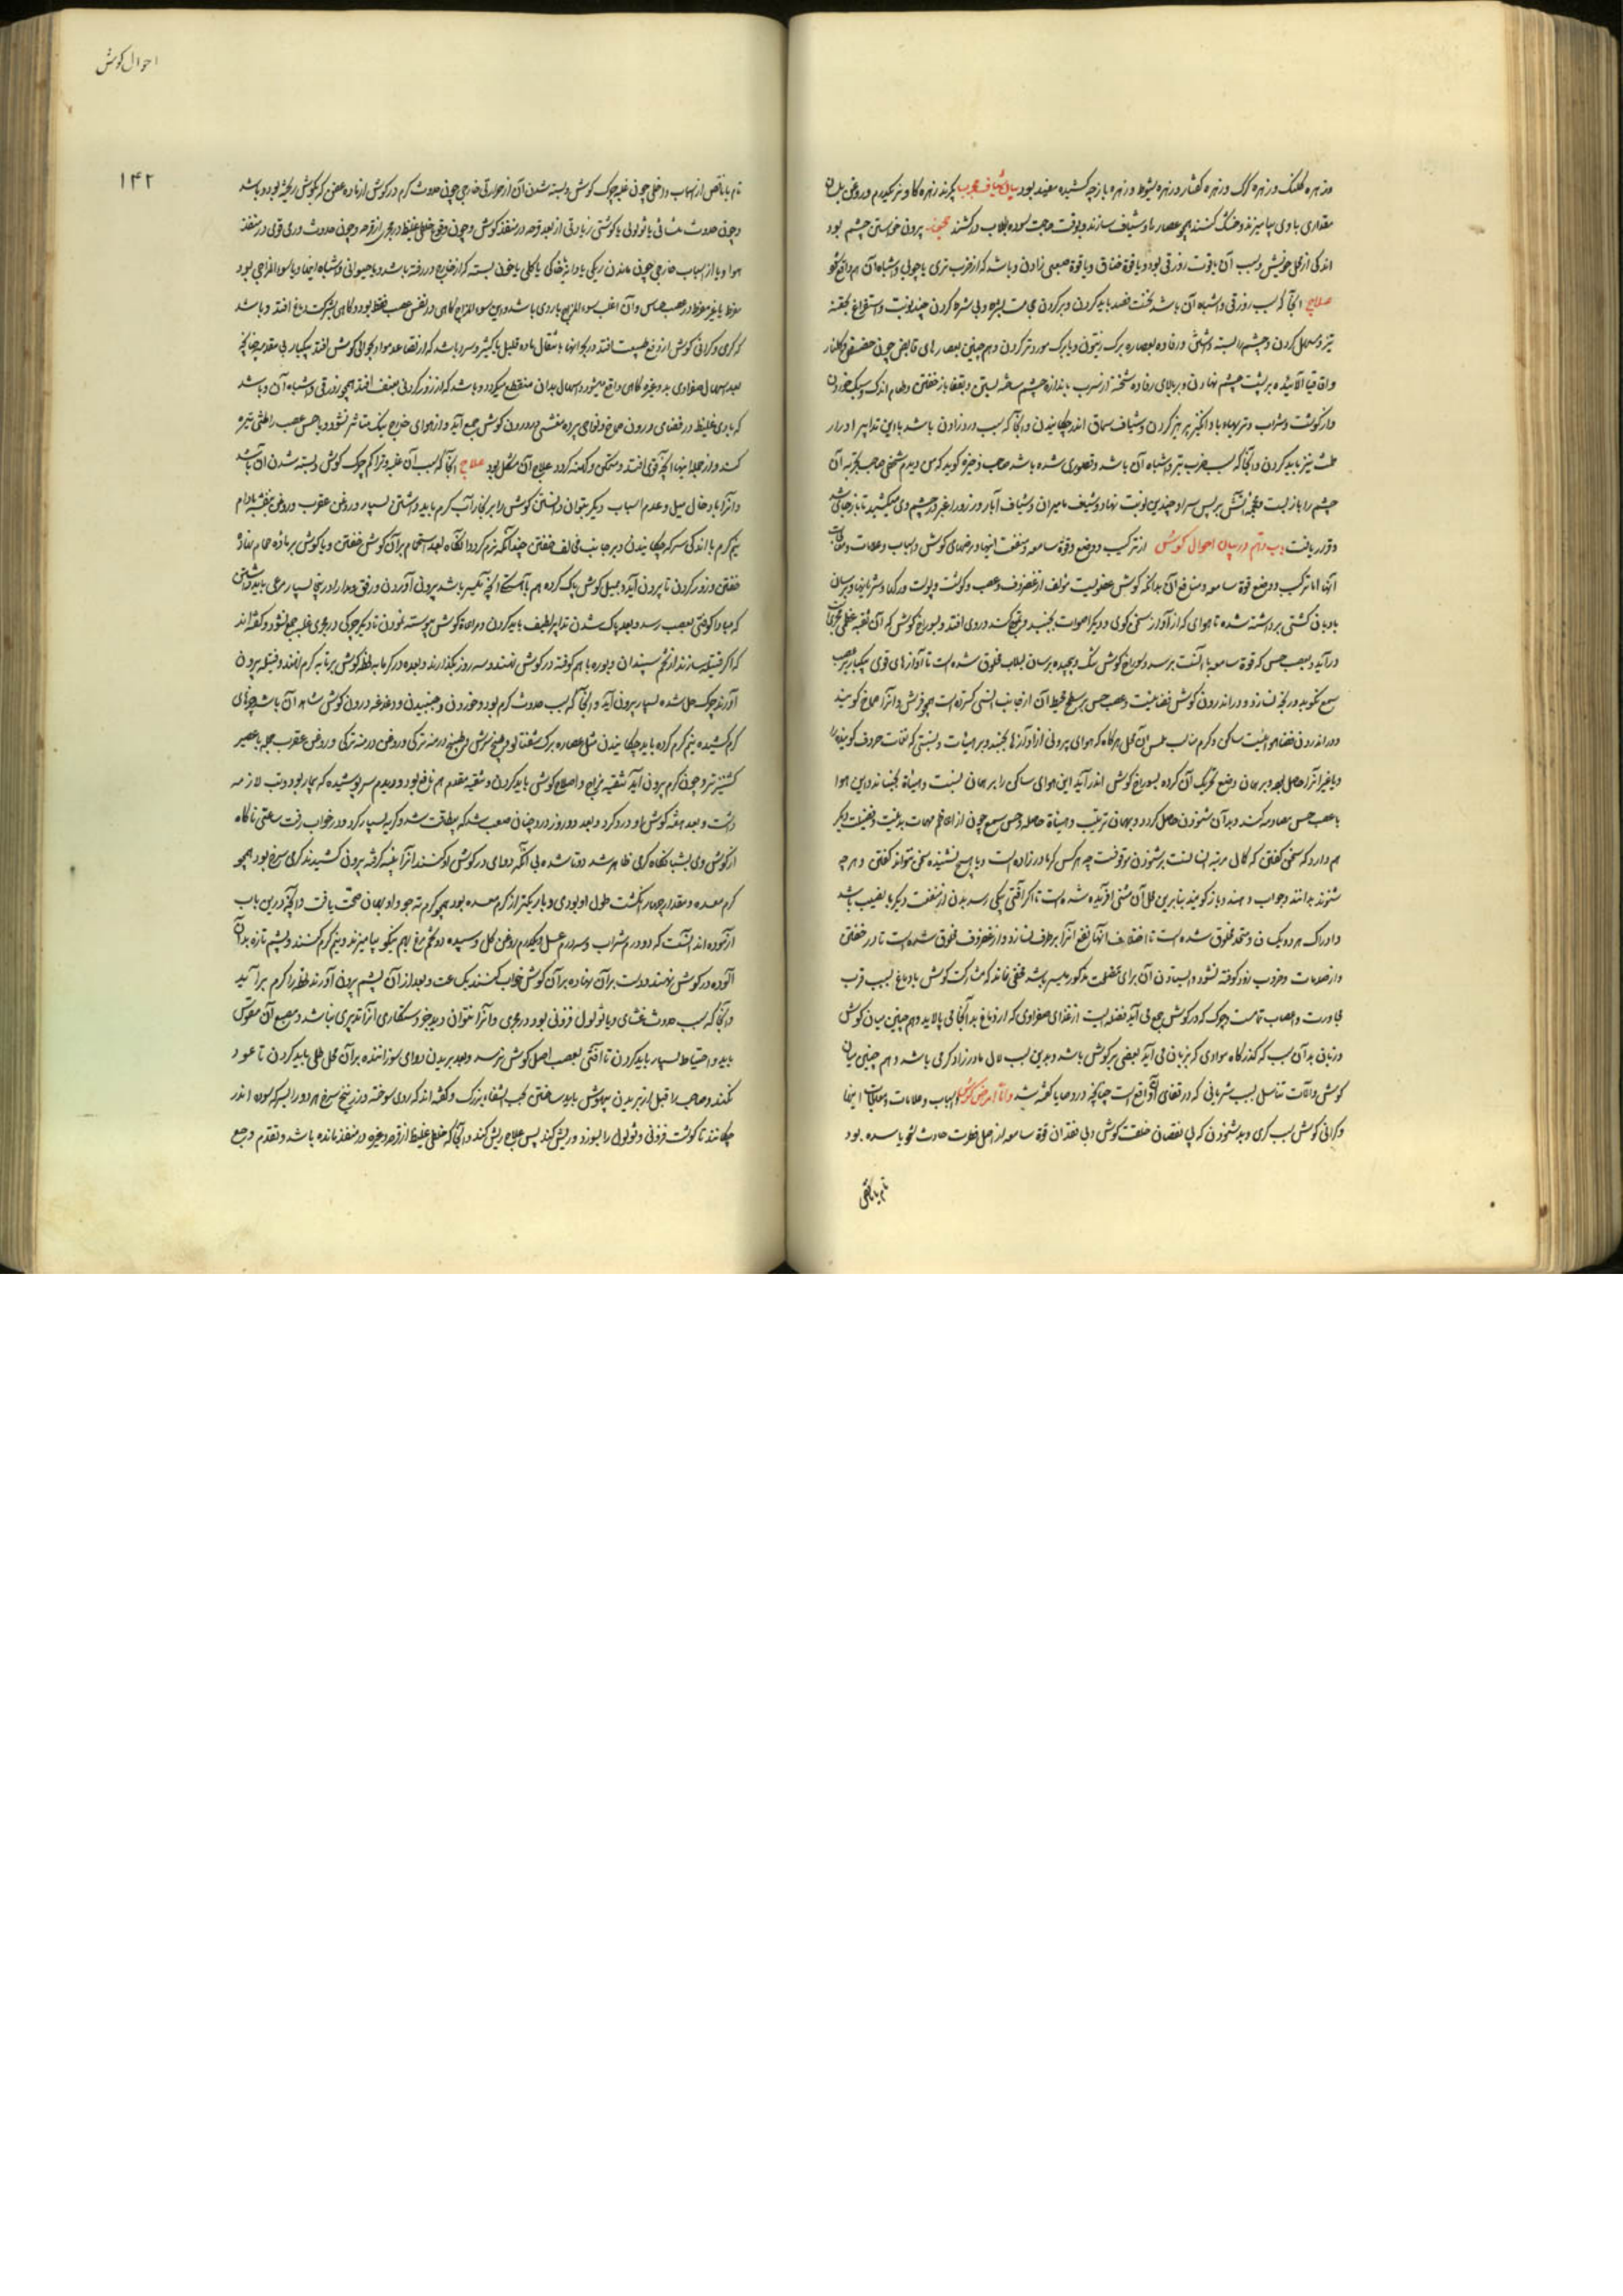 و زهره کلنگ و زهره گرگ و زهره کفتار و زهره شبوط و زهره باز چه کشیده مفید بود بیان شیاف مجرب بگیرند زهره گاو نر یکدرم و روغن بلسان
مقداری با وی بیامیزند و خشک کنند همچو عصاره و شیاف سازند و بوقت حاجت سوده بگلاب درکشند بیرون خواستن چشم بود
اندکی از محل خویش و سبب آن یا قوت زور قی بود و یا قوة خناق و یا قوة صعبی زادن و باشد که از ضرب تری یا چوبی و اشباه آن هم واقع شود
علاج آنجا که سبب زور قی و اشباه آن باشد نخست فصد باید کردن و بر گردن حجامت بشره و بی شره کردن چند نوبت و استفراغ بحقنه
تیز و مسهل کردن و چشم را بسته داشتن و رفاده بعصاره برگ زیتون و یا برگ مورد تر کردن و هم چنین بعصارهای قابض چون حضض و گلنار
و اقاقیا آلائیده بر پشت چشم نهادن و بر بالای رفاده تخته از سرب باندازه چشم ساخته بستن و بقفا باز خفتن و طعام اندک و سبک خوردن
و از گوشت و شراب و تریهاء باد انگیز پرهیز کردن و شیاف سماق اندر چکانیدن و آنجا که سبب درد زادن باشد با این تدابیر ادرار
طمث نیز باید کردن و آنجا که سبب ضرب تیر و اشباه آن باشد و قصوری شده باشد صاحب ذخیره گوید که من دیدم شخصی صاحب تجربه آن
چشم را باز بست و محجمه آتش بر پس سر او چندین نوبت نهاد و شیف مامیران و شیاف آبار و زرور اغبر در چشم وی میکشید تا باز جای شد
و قرار یافت باب دهم در بیان احوال گوش از ترکیب و وضع و قوة سامعه و منفعت اینها و مرضهای گوش و اسباب و علامات و معالجات
آنها اما ترکیب و وضع قوة سامعه و منافع آن بدانکه گوش عضویست مؤلف از غضروف و عصب و گوشت و پوست و رگها و شریانها و برسان
بادبان کشتی برداشته شده تا هوای که از آواز سخن گوی و دیگر اصوات بجنبد و تموج کند در وی افتد و بسوراخ گوش که آن ثقبه عظم حجری
درآید و بعصب حس که قوة سامعه با آنست برسد و سوراخ گوش تنگ و پیچیده برسان لبلاب مخلوق شده است تا آوازهای قوی بیکبار بعصب
سمع نکوبد و رنجه نسازد و در اندرون گوش فضائیست و عصب حس بر سطح محیط آن از جانب انسی گسترده است همچو فرش و آنرا صماخ گویند
و در اندرون فضا هوائیست ساکن و گرم مناسب حس آن محل هرگاه که هوای بیرونی از آوازها بجنبد و بر هیأت و نسبتی که نغمات حروف گوینده را
و یا غیر آنرا حاصل بود و بر همان وضع تحریک آن کرده بسوراخ گوش اندر آید این هوای ساکن را بر همان نسبت و هیأة بجنباند و این هوا
با عصب حس مصادمه کند و بدآن شنودن حاصل گردد و بهمان ترتیب و هیأة حاصله و حس سمع چون از اعاظم مهمات بدنیت و فضیلت دیگر
هم دارد که سخن گفتن که کمال مرتبه انسانست بر شنودن موقوفست چه هر کس کر مادرزاده است و یا هیچ نشنیده سخن نتواند گفتن و هر چه
شنوند بدانند و جواب دهند و باز گویند بنابرین محل آن مثنی آفریده شده است تا اگر آفتی بیکی رسد بدن از منفعت دیگر بی نصیب نباشد
و ادراک هر دو یکسان و متحد مخلوق شده است تا اختلاف آنها نفع آنرا برطرف نسازد و از غضروف مخلوق شده است تا در خفتن
و از صدمات و ضروب زود کوفته نشود و ایستادن آن برای مصلحت مذکور میسر باشد مخفی نماند که مشارکت گوش با دماغ بسبب قرب
مجاورت و اعصاب تمامست و چرک که در گوش جمع می آید فضله ایست از غذای صفراوی که از دماغ بدآنجا می پالاید و هم چنین میان گوش
و زبان بدآن سبب که گذرگاه موادی که بزبان می آید بعضی بر گوش باشد و بدین سبب لال مادرزاد کر می باشد و هم چنین میان
گوش و آلات تناسل بسبب شریانی که در قفای گوش واقع است چنانچه در وصایا گفته شد و اما امراض گوش و اسباب و علامات و معالجات اینها
و گرانی گوش بسبب کری و بد شنودن که بی نقصان خلقت گوش و بی فقدان قوة سامعه از اصل فطرت حادث شود یا سده بود
تام یا ناقص
احوال گوش
۱۴۲
تام یا ناقص از اسباب داخلی چون غلبه چرک گوش و بسته شدن آن از حرارتی خارجی چون حدوث کرم در گوش از ماده عفن که بگوش ریخته بود و باشد
و چون حدوث غشائی یا ثؤلولی یا گوشتی زیادتی از بعد قرحه در منفذ گوش و چون وقوع خلطی غلیظ در مجری از قرحه و چون حدوث دری قوی در منفذ
هوا و یا از اسباب خارجی چون ماندن ریگی یا دانه یا خاکی یا گلی یا خون بسته که از خارج در رفته باشد و یا حیوانی و اشباه اینها و یا سوء المزاجی بود
مفرط یا غیر مفرط در عصب حساس و آن اغلب سوء المزاج باردی باشد و این سوء المزاج گاهی در نفس عصب فقط بود و گاهی بشرکت دماغ افتد و باشد
که کری و گرانی گوش از دفع طبیعت افتد در بحرانها بانتقال ماده قلیل یا کثیر و سرد باشد که از تصاعد مواد بحوالی گوش افتد بیکبار بی مقدمه چنانچه
بعد اسهال صفراوی بد و غیره گاهی واقع میشود و اسهال بدان منقطع میگردد و باشد که از زور کردنی بعنف افتد همچو زور قی و اشباه آن و باشد
که بادی غلیظ در فضای درون صماخ و نواحی پرده مغشی درون گوش جمع آید و از هوای خارج نیک متاثر نشود و یا حس عصب را غشی تیره
کند و از جمله اینها آنچه قوی افتد و متمکن و کهنه گردد علاج آن مشکل بود علاج آنجا که سبب آن غلبه و تراکم چرک گوش و بسته شدن آن باشد
و آنرا بادخال میل و عدم اسباب دیگر بتوان دانستن گوش را بر بخار آب گرم باید داشتن بسیار و روغن عقرب و روغن بنفشه بادام
نیم گرم با اندکی سرکه چکانیدن و بر جانب مخالف خفتن چندآنکه نرم گردد آنگاه بعد استحمام بر آن گوش خفتن و یا گوش بر ماده حمام نهاده
خفتن و زور کردن تا بیرون آید و بمیل گوش پاک کرده هم بآهستگی آنچه میسر باشد بیرون آوردن و رفق و مدارا در اینجا بسیار مرعی باید داشتن
که مبادا کوفتی بعصب رسد و بعد پاک شدن تدابیر لطیف باید کردن و مراعاة گوش پیوسته نمودن تا دیگر چرکی در مجری غلبه جمع نشود و گفته اند
که اگر فتیله سازند از تخم سپندان و بوره با هم کوفته در گوش نهند و سه روز بگذارند و بعده در گرمابه لحظه گوش بر تابه گرم نهند و فتیله بیرون
آرند چرک حل شده بسیار بیرون آید و آنجا که سبب حدوث کرم بود و خوردن و جنبیدن و دغدغه درون گوش شاهد آن باشد دواهای
کرم کشنده نیم گرم کرده باید چکانیدن مثل عصاره برگ شفتالو و طبیخ ترمس و طبیخ درمنه ترکی و روغن درمنه ترکی و روغن عقرب همه با عصیر
گشنیز تر و چون کرم بیرون آید تنقیه مزاج و اصلاح گوش باید کردن و تنقیه مقدم هم نافع بود و دیدم سر پوشیده که بیمار بود و تب لازمه
داشت و بعد هفته گوش او درد کرد و بعد دو روز درد چنان صعب شد که بیطاقت شد و گریه بسیار کرد و در خواب رفت ساعتی ناگاه
از گوش وی بشبانگاه کرمی ظاهر شد دوتا شده بی آنکه دوای در گوش او کنند آنرا بپنبه گرفته بیرون کشیدند کرمی سرخ بود همچو
کرم معده و مقدار چهار انگشت طول او بودی و باریکتر از کرم معده بود همچو کرم ته جو و او بهمان صحت یافت و آنچه درین باب
آزموده اند آنست که دو درم شراب و سه درم عسل و یکدرم روغن گل و سپیده دو تخم مرغ بهم نیکو بیامیزند و نیم گرم کنند و پشم تازه بدآن
آلوده در گوش نهند و دست بر آن نهاده بر آن گوش خواب کنند یک ساعت و بعد از آن پشم بیرون آورند لحظه را کرم برآید
و آنجا که سبب حدوث غشای و یا ثؤلول فزونی بود در مجری و آنرا نتوان دید جز دستکاری آنرا تدبیری نباشد و مبضع آن مقوس
باید و احتیاط بسیار باید کردن تا آفتی بعصب اصل گوش نرسد و بعد بریدن دوای سوزاننده بر آن محل طلی باید کردن تا عود
نکند و صاحب را قبل از بریدن بیهوش باید ساختن بحب الشفاء بزرگ و گفته اند که روی سوخته و زرنیخ سرخ هر دو را بسرکه سوده اندر
چکانند تا گوشت فزونی و ثؤلول را بسوزد و ریش کند پس علاج ریش کند و آنجا که خلطی غلیظ از قرحه و غیره در منفذ مانده باشد و تقدم وجع